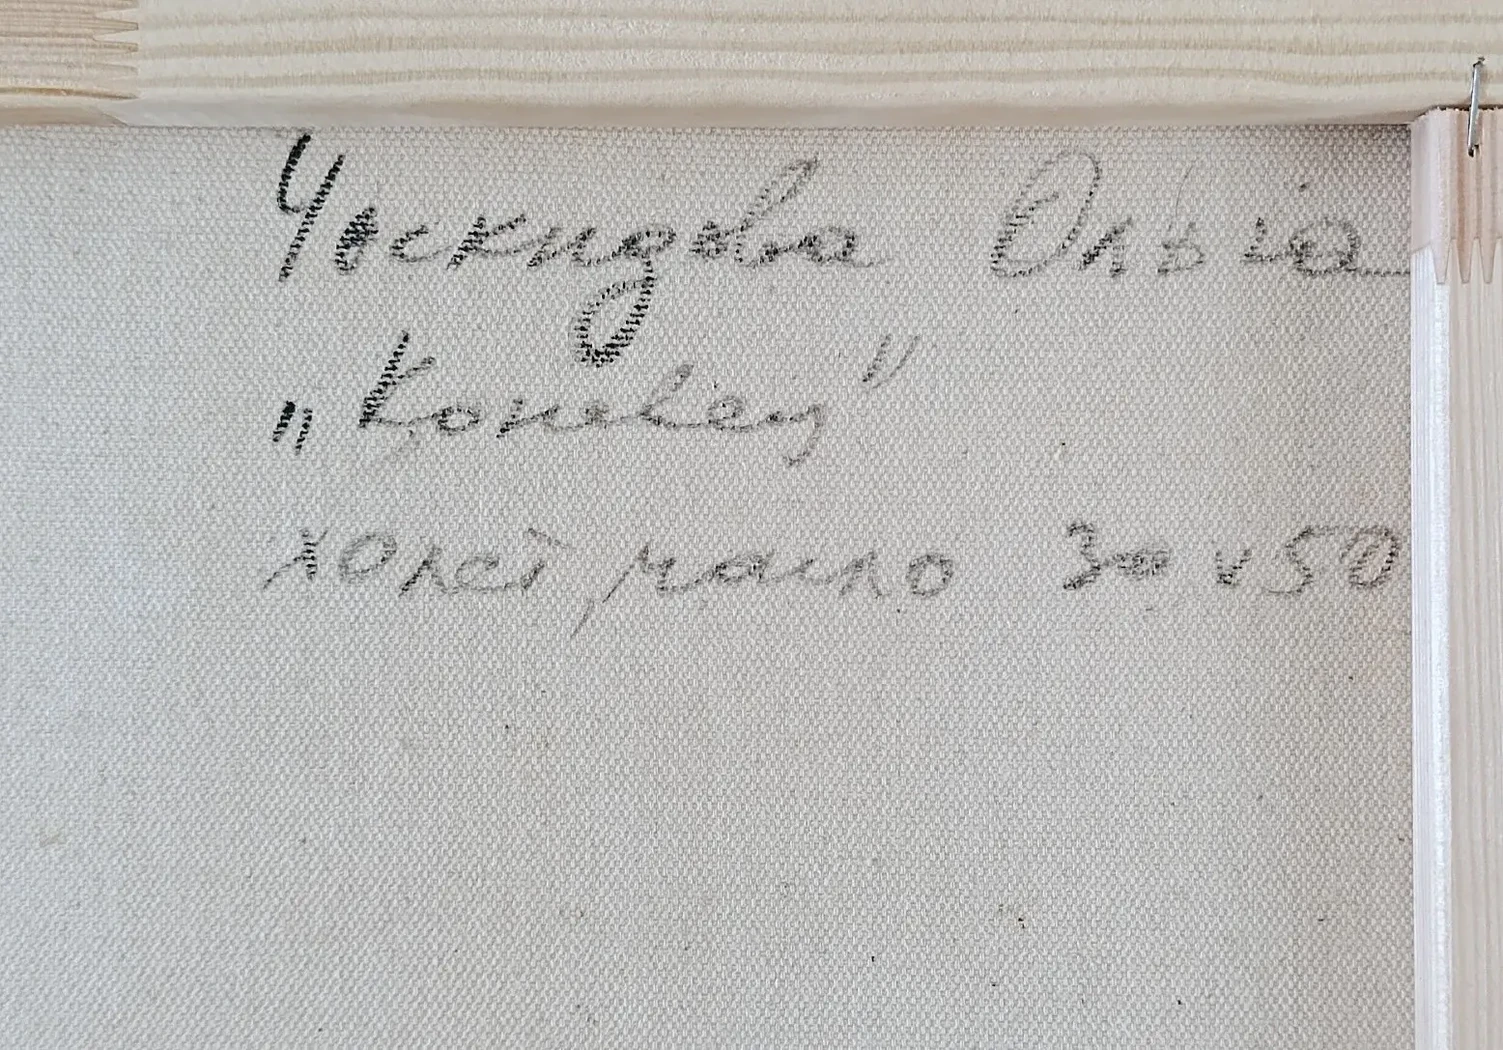 Носкидова Ольга
„Коневец"
холст, масло 30 х 50